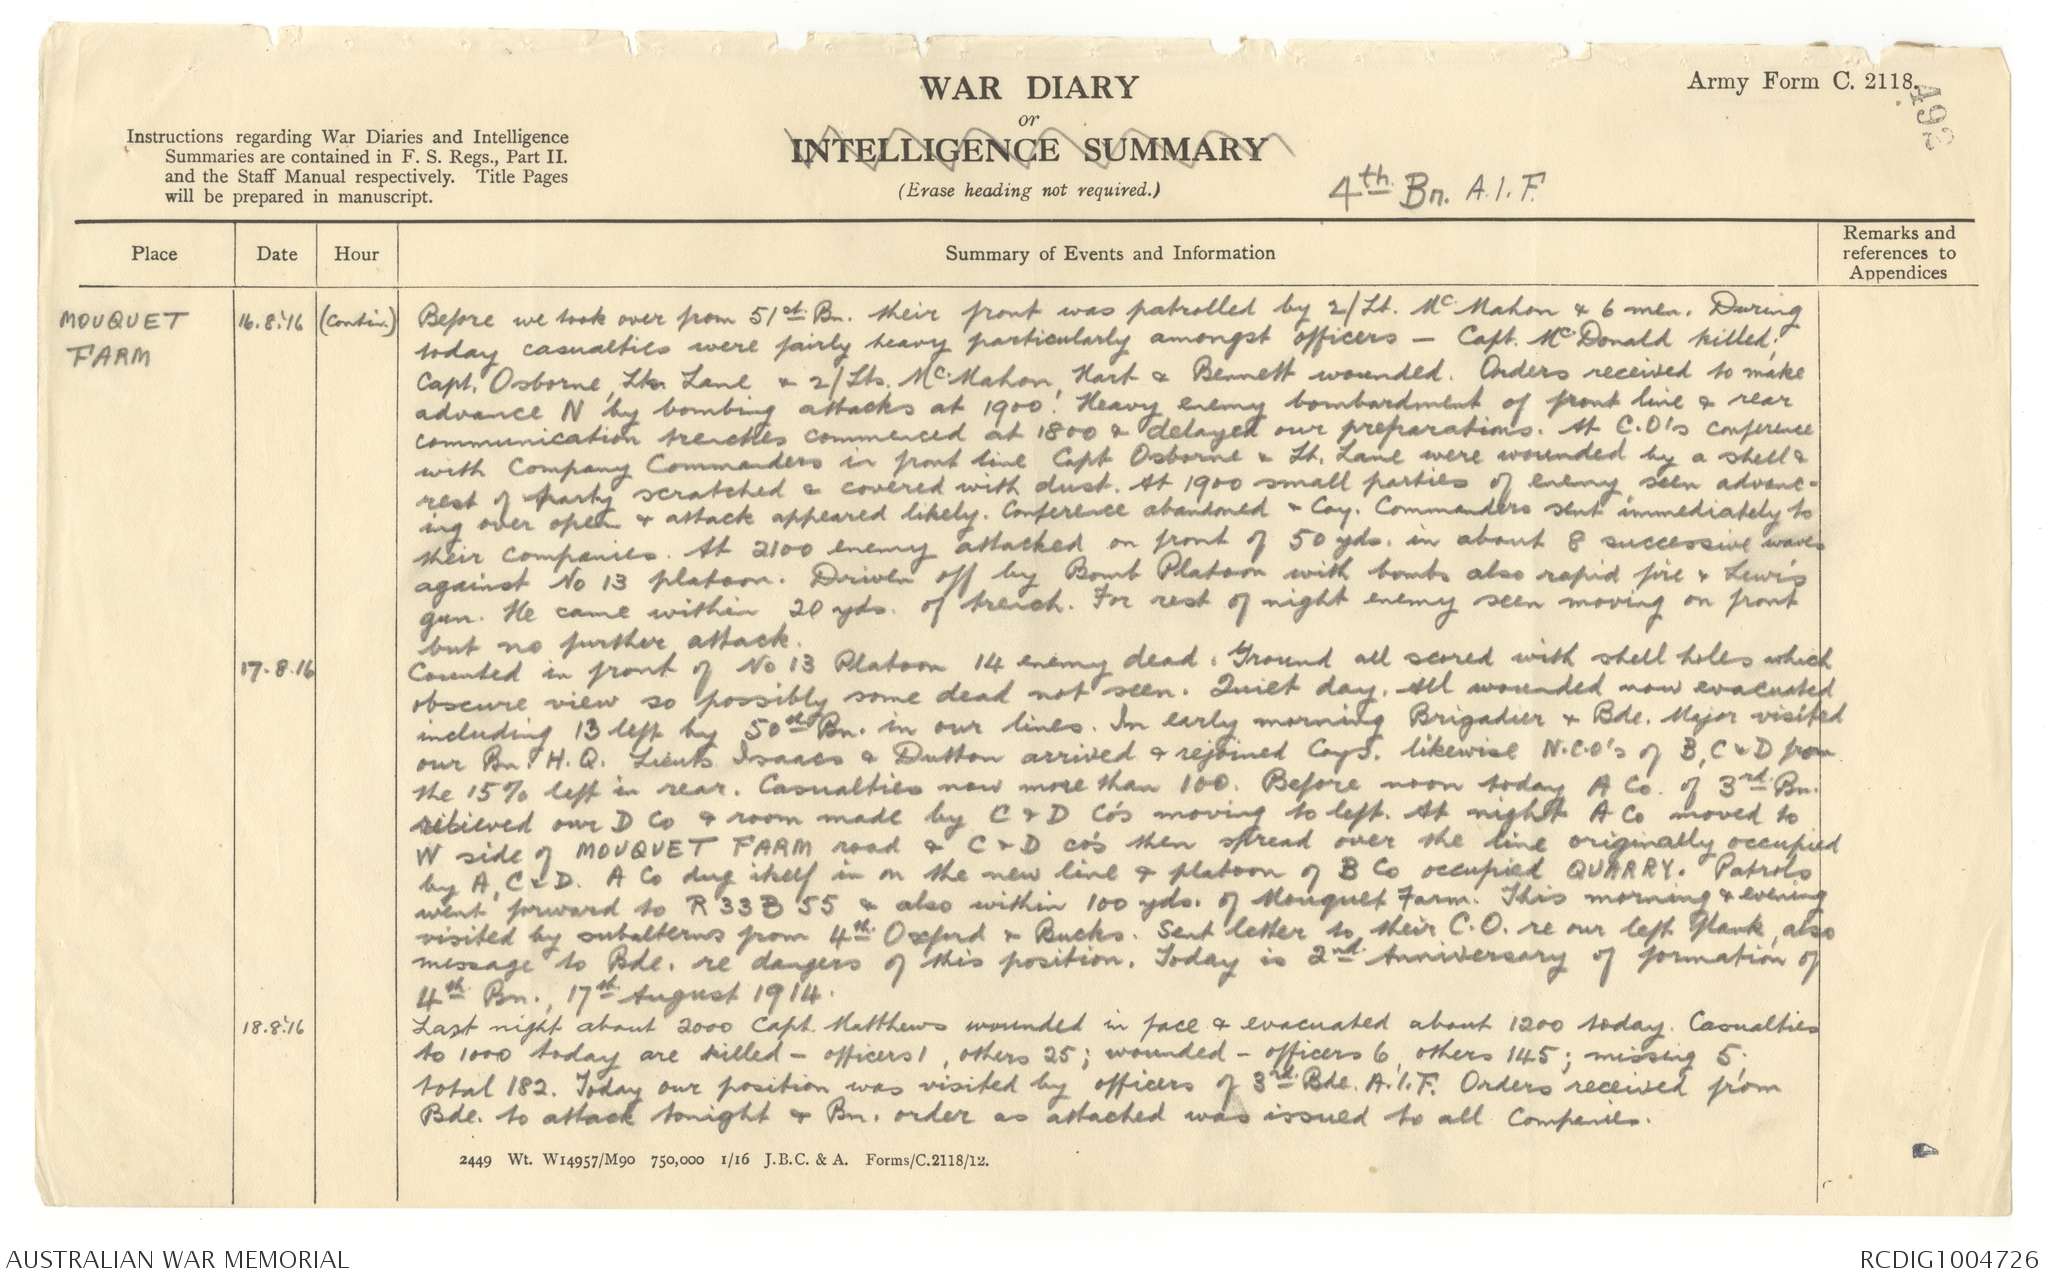 WAR DIARY
or
INTELLIGENCE SUMMARY
(Erase heading not required.)
Army Form C. 2118.
492
Instructions regarding War Diaries and Intelligence
Summaries are contained in F. S. Regs., Part II.
and the Staff Manual respectively. Title Pages
will be prepared in manuscript.
4th Bn. A.I.F.
Place
Date
Hour
Summary of Events and Information
Remarks and
references to
Appendices
MOUQUET
FARM
16.8.'16
(Contin.)
Before we took over from 51st Bn. their front was patrolled by 2/Lt. McMahon & 6 men. During
today casualties were fairly heavy particularly amongst officers – Capt. McDonald killed;
Capt. Osborne, Lts. Lane & 2/Lts. McMahon, Hart & Bennett wounded. Orders received to make
advance N by bombing attacks at 1900. Heavy enemy bombardment of front line & rear
communication trenches commenced at 1800 & delayed our preparations. At C.O's conference
with Company Commanders in front line Capt Osborne & Lt. Lane were wounded by a shell &
rest of party scratched & covered with dust. At 1900 small parties of enemy seen advanc-
ing over open & attack appeared likely. Conference abandoned & Coy. Commanders sent immediately to
their companies. At 2100 enemy attacked on front of 50 yds. in about 8 successive waves
against No 13 platoon. Driven off by Bomb Platoon with bombs also rapid fire & Lewis
gun. He came within 20 yds. of trench. For rest of night enemy seen moving on front
but no further attack.
17.8.16
Counted in front of No 13 Platoon 14 enemy dead. Ground all scored with shell holes which
obscure view so possibly some dead not seen. Quiet day. All wounded now evacuated
including 13 left by 50th Bn. in our lines. In early morning Brigadier & Bde. Major visited
our Bn. H.Q. Lieuts Isaacs & Dutton arrived & rejoined Coys. likewise N.C.O's of B, C & D from
the 15% left in rear. Casualties now more than 100. Before noon today A Co. of 3rd Bn.
relieved our D Co & room made by C & D Co's moving to left. At night A Co moved to
W side of MOUQUET FARM road & C & D co's then spread over the line originally occupied
by A, C & D. A Co dug itself in on the new line & platoon of B Co occupied QUARRY. Patrols
went forward to R 33 B 55 & also within 100 yds. of Mouquet Farm. This morning & evening
visited by subalterns from 4th Oxford & Bucks. Sent letter to their C.O. re our left flank, also
message to Bde. re dangers of this position. Today is 2nd Anniversary of formation of
4th Bn., 17th August 1914.
18.8.'16
Last night about 2000 Capt. Matthews wounded in face & evacuated about 1200 today. Casualties
to 1000 today are killed – officers 1, others 25; wounded – officers 6, others 145; missing 5;
total 182. Today our position was visited by officers of 3rd Bde. A.I.F. Orders received from
Bde. to attack tonight & Bn. order as attached was issued to all Companies.
2449 Wt. W14957/M90 750,000 1/16 J.B.C. & A. Forms/C.2118/12.
AUSTRALIAN WAR MEMORIAL
RCDIG1004726